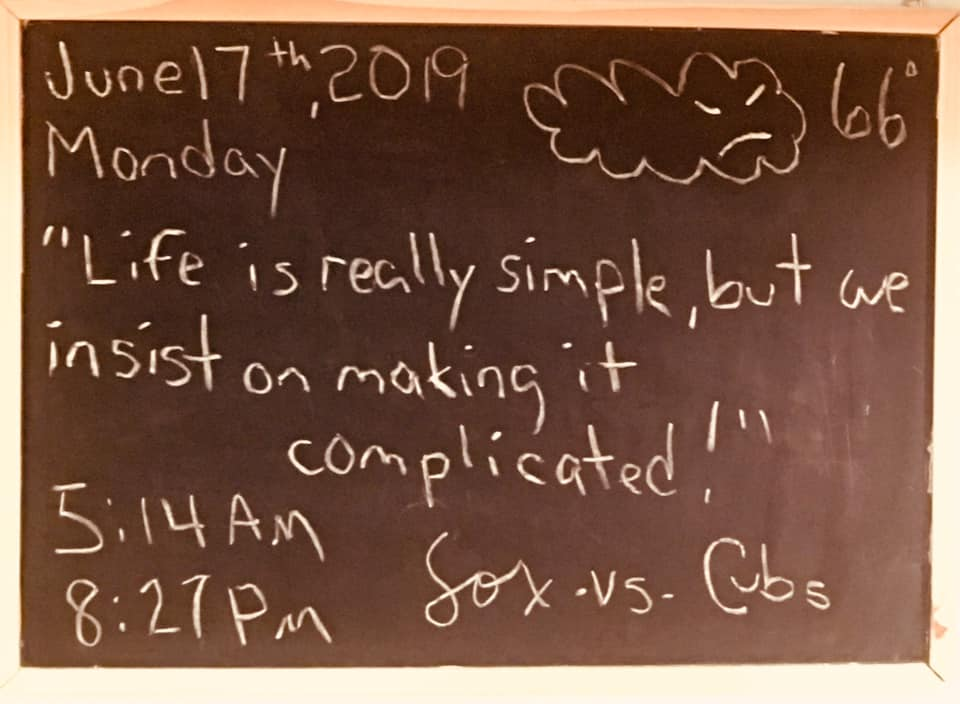 June 17th, 2019
66°
Monday
"Life is really simple, but we
insist on making it
complicated!"
5:14 AM
8:27 Pm
Sox -vs- Cubs